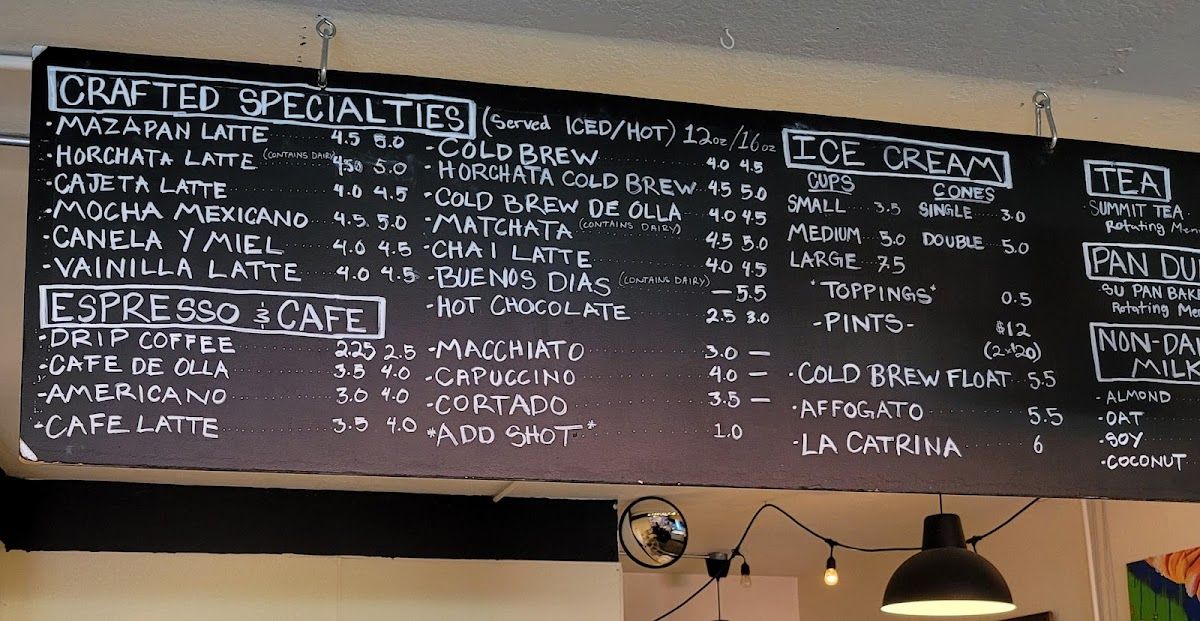 CRAFTED SPECIALTIES (Served ICED/HOT) 12oz/16oz
·MAZAPAN LATTE 4.5 5.0
·HORCHATA LATTE (CONTAINS DAIRY) 4.50 5.0
·CAJETA LATTE 4.0 4.5
·MOCHA MEXICANO 4.5. 5.0
·CANELA Y MIEL 4.0 4.5
·VAINILLA LATTE 4.0 4.5
·COLD BREW 4.0 4.5
·HORCHATA COLD BREW 4.5 5.0
·COLD BREW DE OLLA 4.0 4.5
·MATCHATA (CONTAINS DAIRY) 4.5 5.0
·CHAI LATTE 4.0 4.5
·BUENOS DIAS (CONTAINS DAIRY) — 5.5
·HOT CHOCOLATE 2.5 3.0
ESPRESSO & CAFE
·DRIP COFFEE 2.25 2.5
·CAFE DE OLLA 3.5 4.0
·AMERICANO 3.0 4.0
·CAFE LATTE 3.5 4.0
·MACCHIATO 3.0 —
·CAPUCCINO 4.0 —
·CORTADO 3.5 —
*ADD SHOT* 1.0
ICE CREAM
CUPS CONES
SMALL 3.5 SINGLE 3.0
MEDIUM 5.0 DOUBLE 5.0
LARGE 7.5
*TOPPINGS* 0.5
-PINTS- $12
(2x$20)
·COLD BREW FLOAT 5.5
·AFFOGATO 5.5
·LA CATRINA 6
TEA
SUMMIT TEA
Rotating Menu
PAN DU
·SU PAN BAK
Rotating Me
NON-DAI
MILK
·ALMOND
·OAT
·SOY
·COCONUT